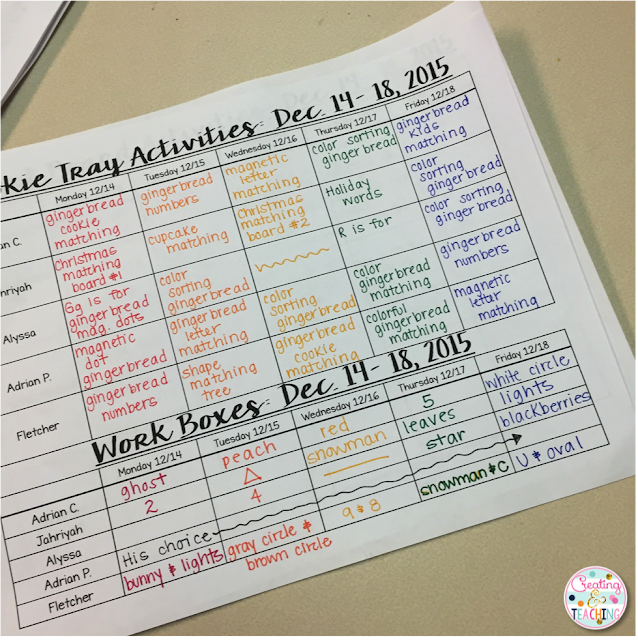 kie Tray Activities: Dec. 14-18, 2015
Monday 12/14
Tuesday 12/15
Wednesday 12/16
Thursday 12/17
Friday 12/18
n C.
gingerbread
cookie
matching
gingerbread
numbers
magnetic
letter
matching
color sorting
gingerbread
gingerbread
kids
matching
hriyah
Christmas
matching
board #1
cupcake
matching
Christmas
matching
board #2
Holiday
words
color
sorting
gingerbread
Alyssa
Gg is for
gingerbread
mag. dots
color
sorting
gingerbread
R is for
color sorting
gingerbread
Adrian P.
magnetic
dot
gingerbread
gingerbread
letter
matching
color
sorting
gingerbread
color
gingerbread
matching
gingerbread
numbers
Fletcher
gingerbread
numbers
shape
matching
tree
gingerbread
cookie
matching
colorful
gingerbread
matching
magnetic
letter
matching
Work Boxes: Dec. 14-18, 2015
Monday 12/14
Tuesday 12/15
Wednesday 12/16
Thursday 12/17
Friday 12/18
Adrian C.
ghost
peach
red
5
white circle
Jahriyah
2
snowman
leaves
lights
Alyssa
4
star
blackberries
Adrian P.
His choice
Fletcher
bunny & lights
gray circle &
brown circle
9 & 8
snowman & C
U & oval
Creating
&
TEACHING